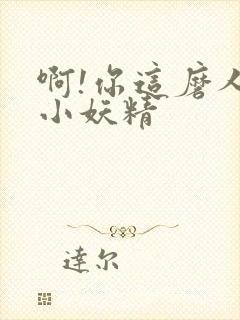 啊!你這磨人
小妖精
達尔